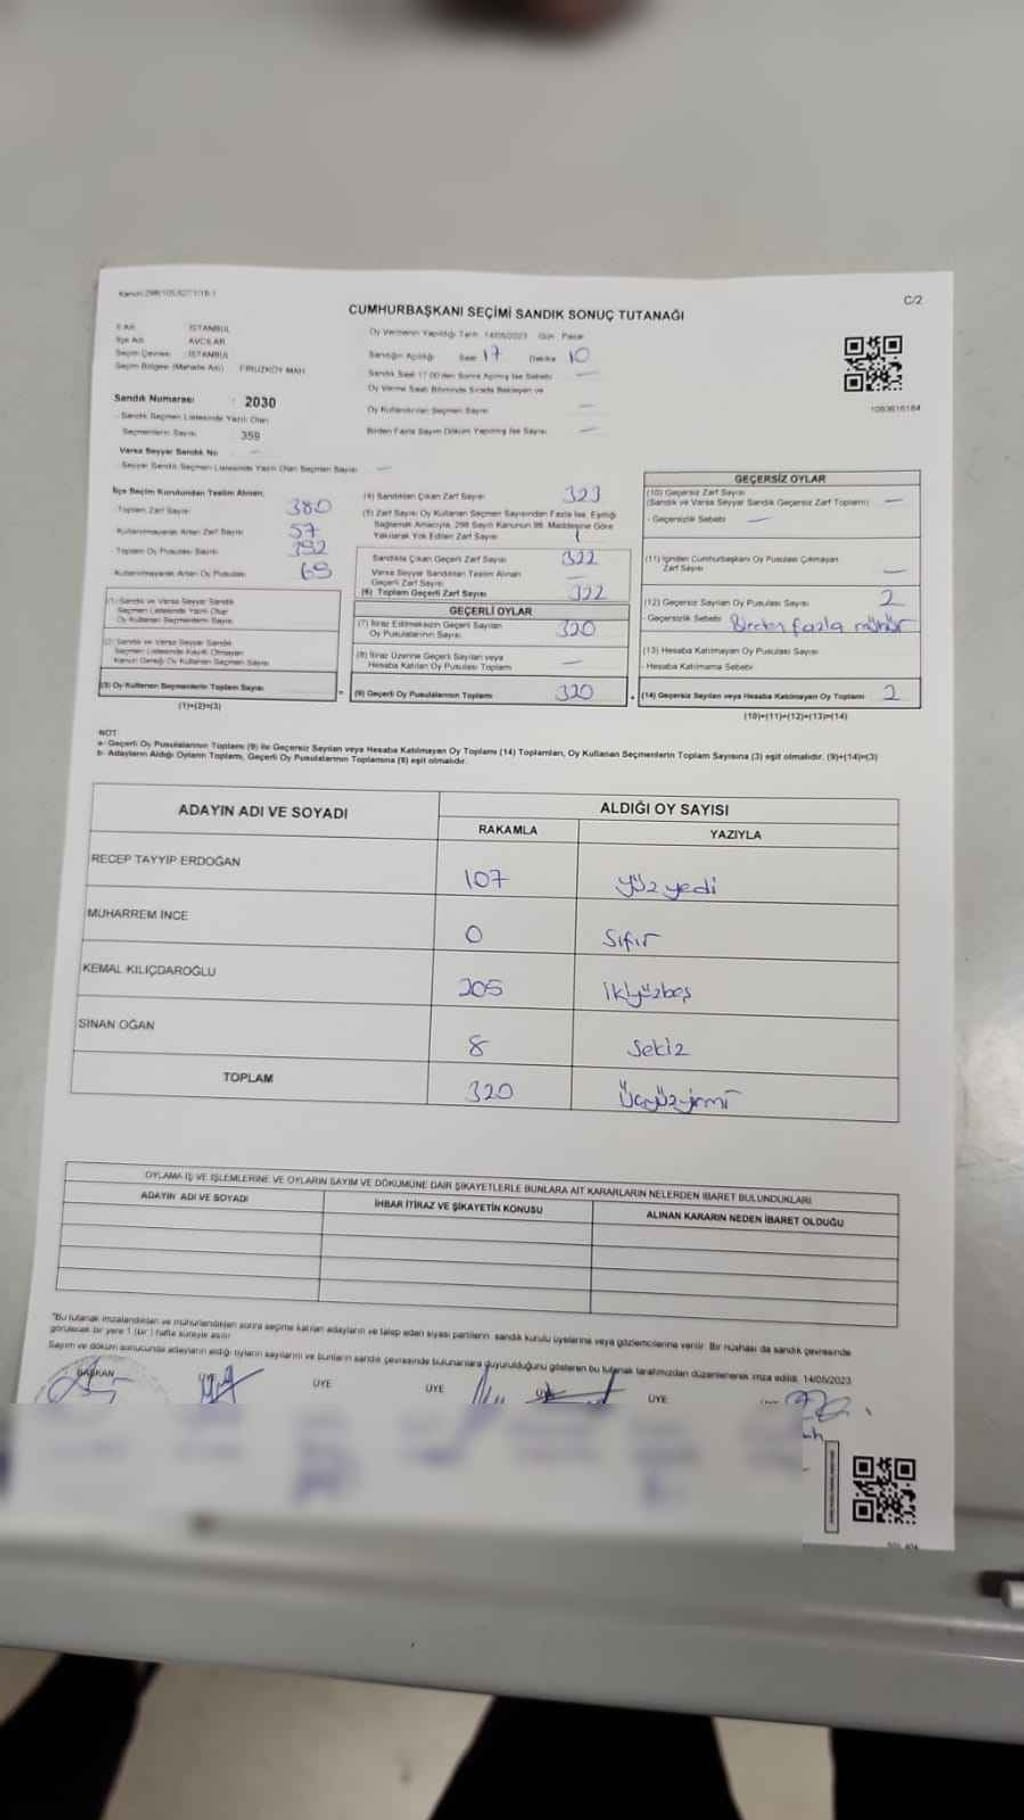 Kanun: 298/105, 6271/16-1
C/2
CUMHURBAŞKANI SEÇİMİ SANDIK SONUÇ TUTANAĞI
İl Adı İSTANBUL
İlçe Adı AVCILAR
Seçim Çevresi İSTANBUL
Seçim Bölgesi (Mahalle Adı) FİRUZKÖY MAH.
Oy Vermenin Yapıldığı Tarih 14/05/2023 Gün Pazar
Sandığın Açıldığı Saat 17 Dakika 10
Sandık Saat 17.00'den Sonra Açılmış İse Sebebi —
Oy Verme Saati Bitiminde Sırada Bekleyen ve
Oy Kullandırılan Seçmen Sayısı —
Birden Fazla Sayım Döküm Yapılmış İse Sayısı —
1083616184
Sandık Numarası : 2030
Sandık Seçmen Listesinde Yazılı Olan
Seçmenlerin Sayısı 359
Varsa Seyyar Sandık No —
Seyyar Sandık Seçmen Listesinde Yazılı Olan Seçmen Sayısı —
İlçe Seçim Kurulundan Teslim Alınan;
Toplam Zarf Sayısı 380
Kullanılmayarak Artan Zarf Sayısı 57
Toplam Oy Pusulası Sayısı 392
Kullanılmayarak Artan Oy Pusulası 69
(1) Sandık ve Varsa Seyyar Sandık
Seçmen Listesinde Yazılı Olup
Oy Kullanan Seçmenlerin Sayısı
(2) Sandık ve Varsa Seyyar Sandık
Seçmen Listesinde Kayıtlı Olmayan
Kanun Gereği Oy Kullanan Seçmen Sayısı
(3) Oy Kullanan Seçmenlerin Toplam Sayısı
(1)+(2)=(3)
(4) Sandıktan Çıkan Zarf Sayısı 323
(5) Zarf Sayısı Oy Kullanan Seçmen Sayısından Fazla İse, Eşitliği
Sağlamak Amacıyla, 298 Sayılı Kanunun 98. Maddesine Göre
Yakılarak Yok Edilen Zarf Sayısı 1
Sandıkta Çıkan Geçerli Zarf Sayısı 322
Varsa Seyyar Sandıktan Teslim Alınan
Geçerli Zarf Sayısı —
(6) Toplam Geçerli Zarf Sayısı 322
GEÇERLİ OYLAR
(7) İtiraz Edilmeksizin Geçerli Sayılan
Oy Pusulalarının Sayısı 320
(8) İtiraz Üzerine Geçerli Sayılan veya
Hesaba Katılan Oy Pusulası Toplamı —
= (9) Geçerli Oy Pusulalarının Toplamı 320
GEÇERSİZ OYLAR
(10) Geçersiz Zarf Sayısı
(Sandık ve Varsa Seyyar Sandık Geçersiz Zarf Toplamı) —
- Geçersizlik Sebebi —
(11) İçinden Cumhurbaşkanı Oy Pusulası Çıkmayan
Zarf Sayısı —
(12) Geçersiz Sayılan Oy Pusulası Sayısı 2
- Geçersizlik Sebebi Birden fazla mühür
(13) Hesaba Katılmayan Oy Pusulası Sayısı
- Hesaba Katılmama Sebebi
+ (14) Geçersiz Sayılan veya Hesaba Katılmayan Oy Toplamı 2
(10)+(11)+(12)+(13)=(14)
NOT
a- Geçerli Oy Pusulalarının Toplamı (9) ile Geçersiz Sayılan veya Hesaba Katılmayan Oy Toplamı (14) Toplamları, Oy Kullanan Seçmenlerin Toplam Sayısına (3) eşit olmalıdır. (9)+(14)=(3)
b- Adayların Aldığı Oyların Toplamı, Geçerli Oy Pusulalarının Toplamına (9) eşit olmalıdır.
ADAYIN ADI VE SOYADI
ALDIĞI OY SAYISI
RAKAMLA YAZIYLA
RECEP TAYYİP ERDOĞAN 107 yüz yedi
MUHARREM İNCE 0 Sıfır
KEMAL KILIÇDAROĞLU 205 ikiyüzbeş
SİNAN OĞAN 8 Sekiz
TOPLAM 320 Üçyüzyirmi
OYLAMA İŞ VE İŞLEMLERİNE VE OYLARIN SAYIM VE DÖKÜMÜNE DAİR ŞİKAYETLERLE BUNLARA AİT KARARLARIN NELERDEN İBARET BULUNDUKLARI
ADAYIN ADI VE SOYADI İHBAR İTİRAZ VE ŞİKAYETİN KONUSU ALINAN KARARIN NEDEN İBARET OLDUĞU
"Bu tutanak imzalandıktan ve mühürlendikten sonra seçime katılan adayların ve talep eden siyasi partilerin sandık kurulu üyelerine veya gözlemcilerine verilir. Bir nüshası da sandık çevresinde
görülecek bir yere 1 (bir) hafta süreyle asılır
Sayım ve döküm sonucunda adayların aldığı oyların sayılarını ve bunların sandık çevresinde bulunanlara duyurulduğunu gösteren bu tutanak tarafımızdan düzenlenerek imza edildi. 14/05/2023
BAŞKAN ÜYE ÜYE ÜYE ÜYE ÜYE